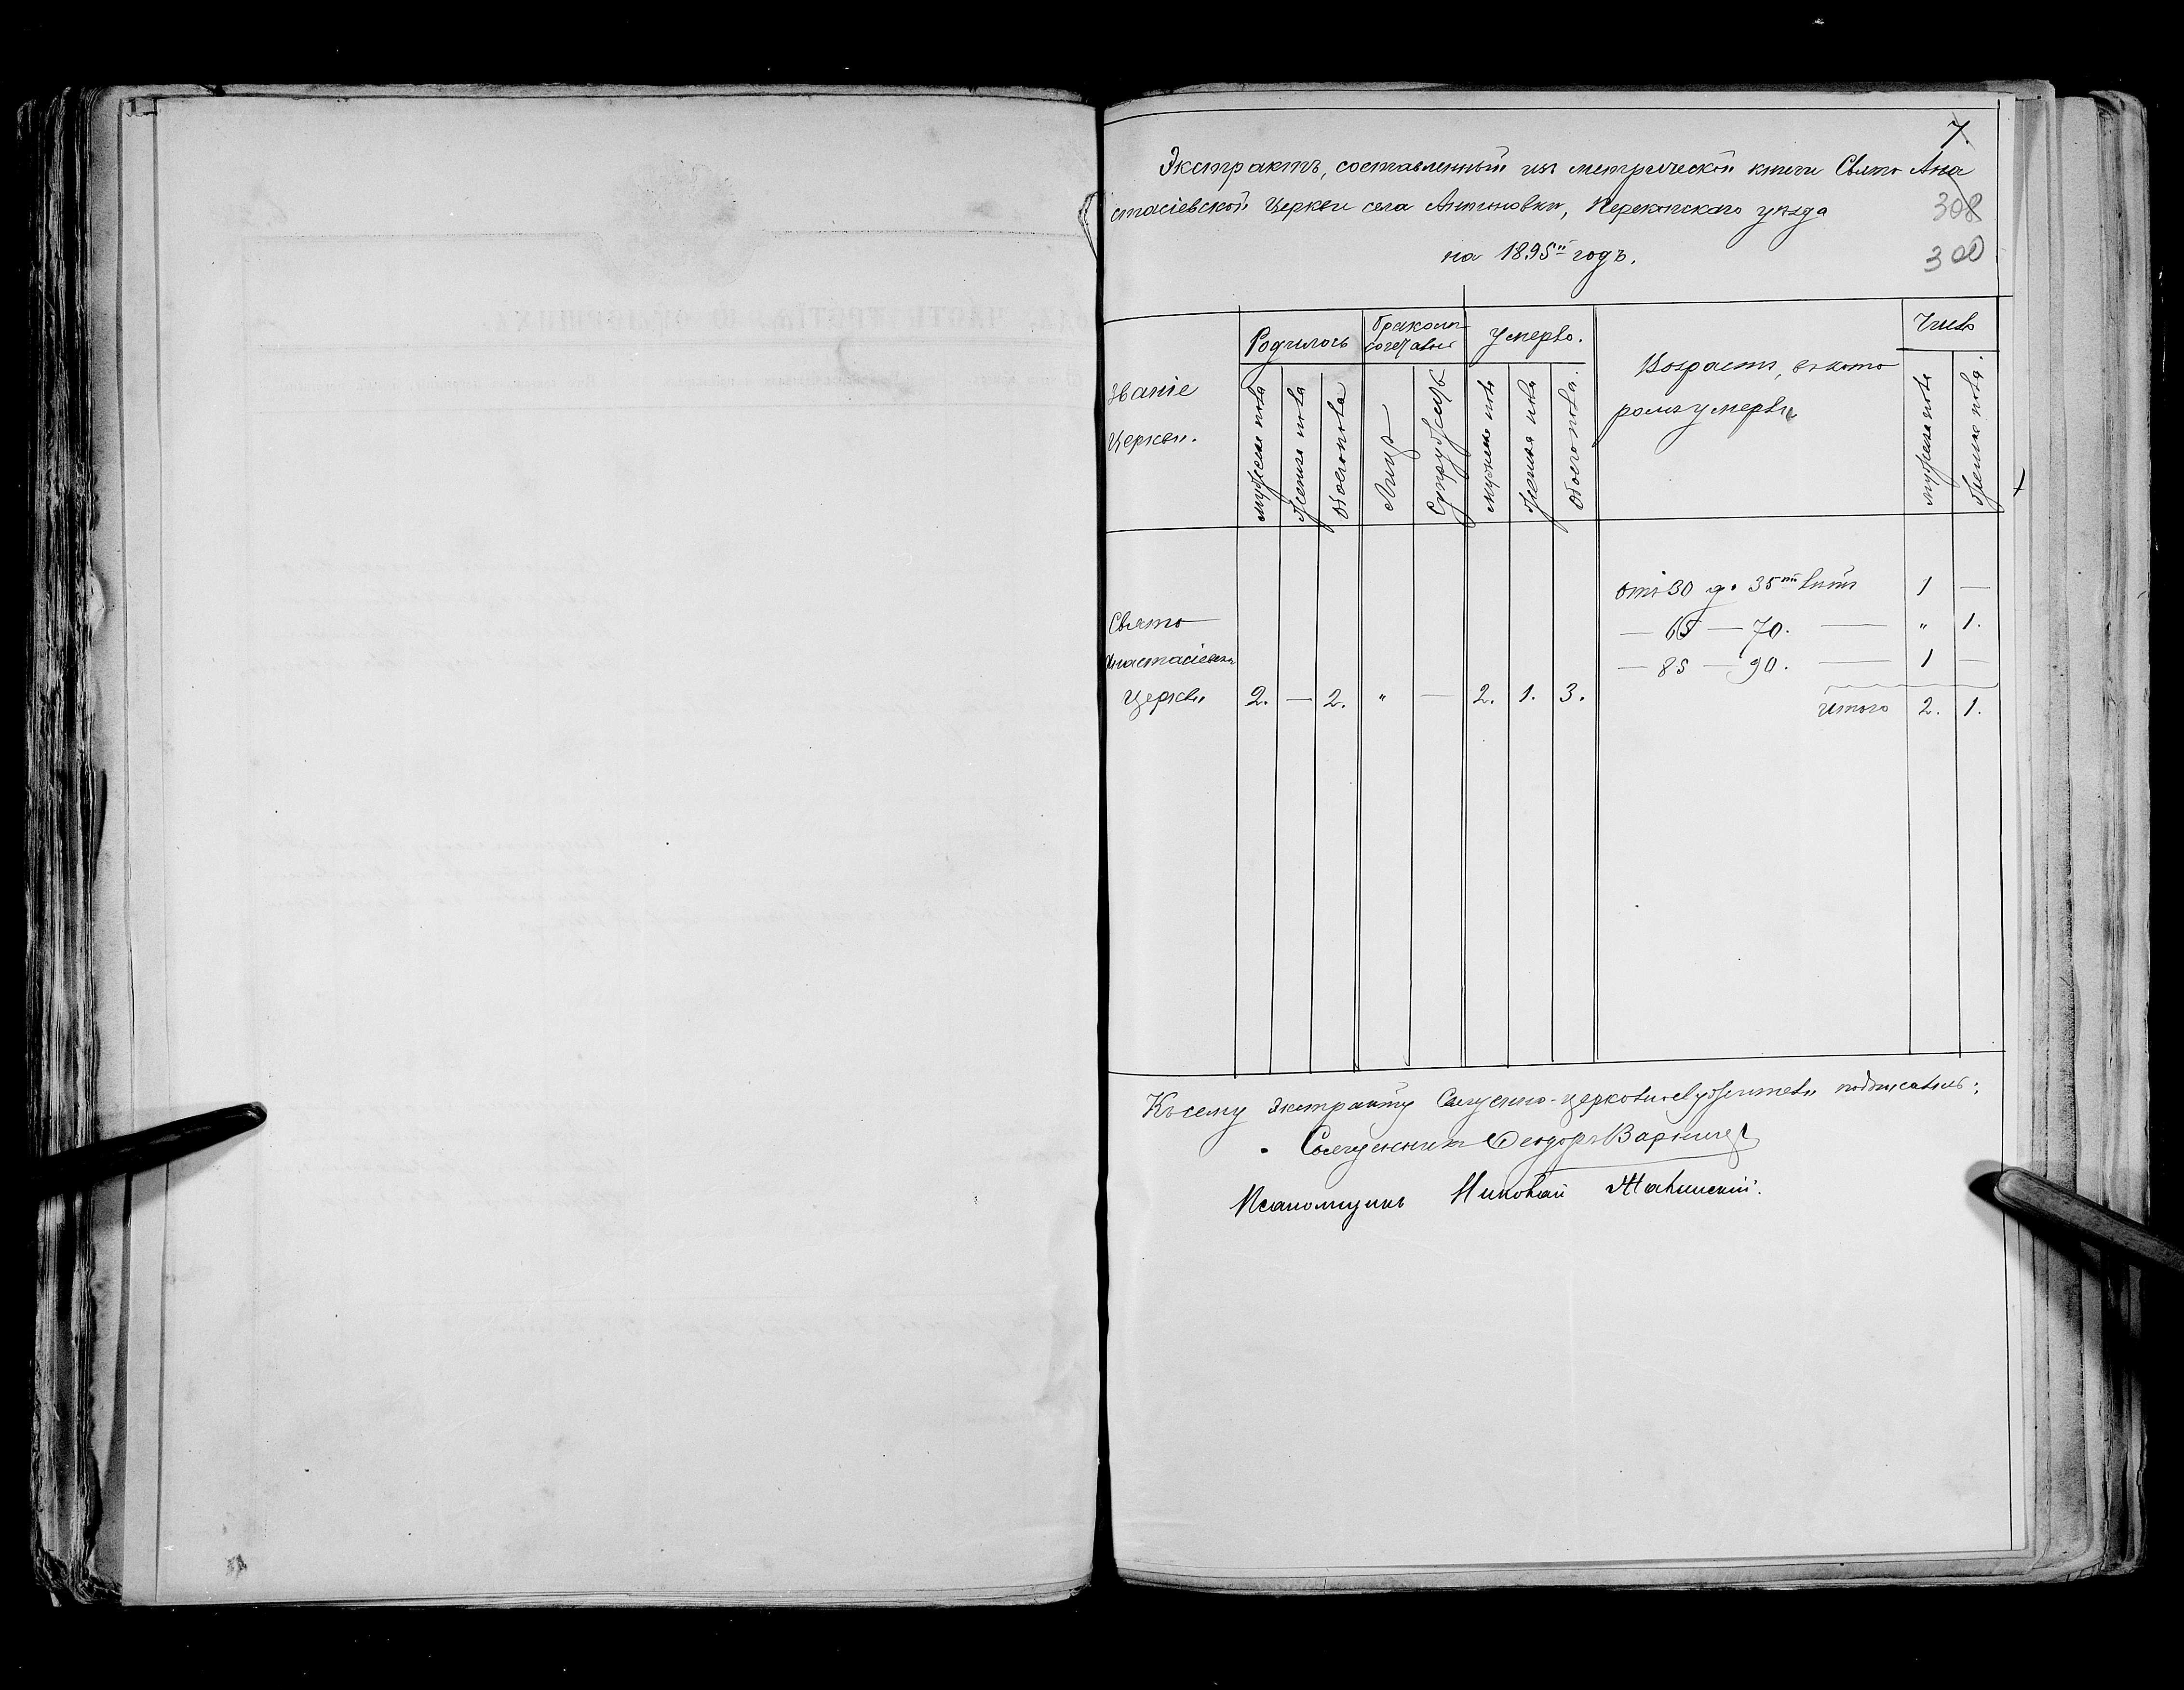 7
Экстрактъ, составленный изъ метрической книги Свято Ана
стасіевской Церкви села Антоновки, Перекопскаго уѣзда
308
на 1895й годъ.
300
Званіе
Церкви.
Родилось
Бракомъ
сочеталось
Умерло.
Возрастъ, въ кото
ромъ умерли
Число
мужеска пола
женска пола
Обоего пола
Лицъ
Супружествъ
мужеска пола
женска пола
Обоего пола.
мужеска пола
женска пола.
отъ 30 до 35ти лѣтъ 1 —
— 65 — 70. — " 1.
— 85 — 90. — 1 —
Свято
Анастасіевск.
Церкви 2. — 2. " — 2. 1. 3.
Итого 2. 1.
Къ сему экстракту Священно-церковнослужители подписались:
Священникъ Ѳеодоръ
Псаломщикъ Николай